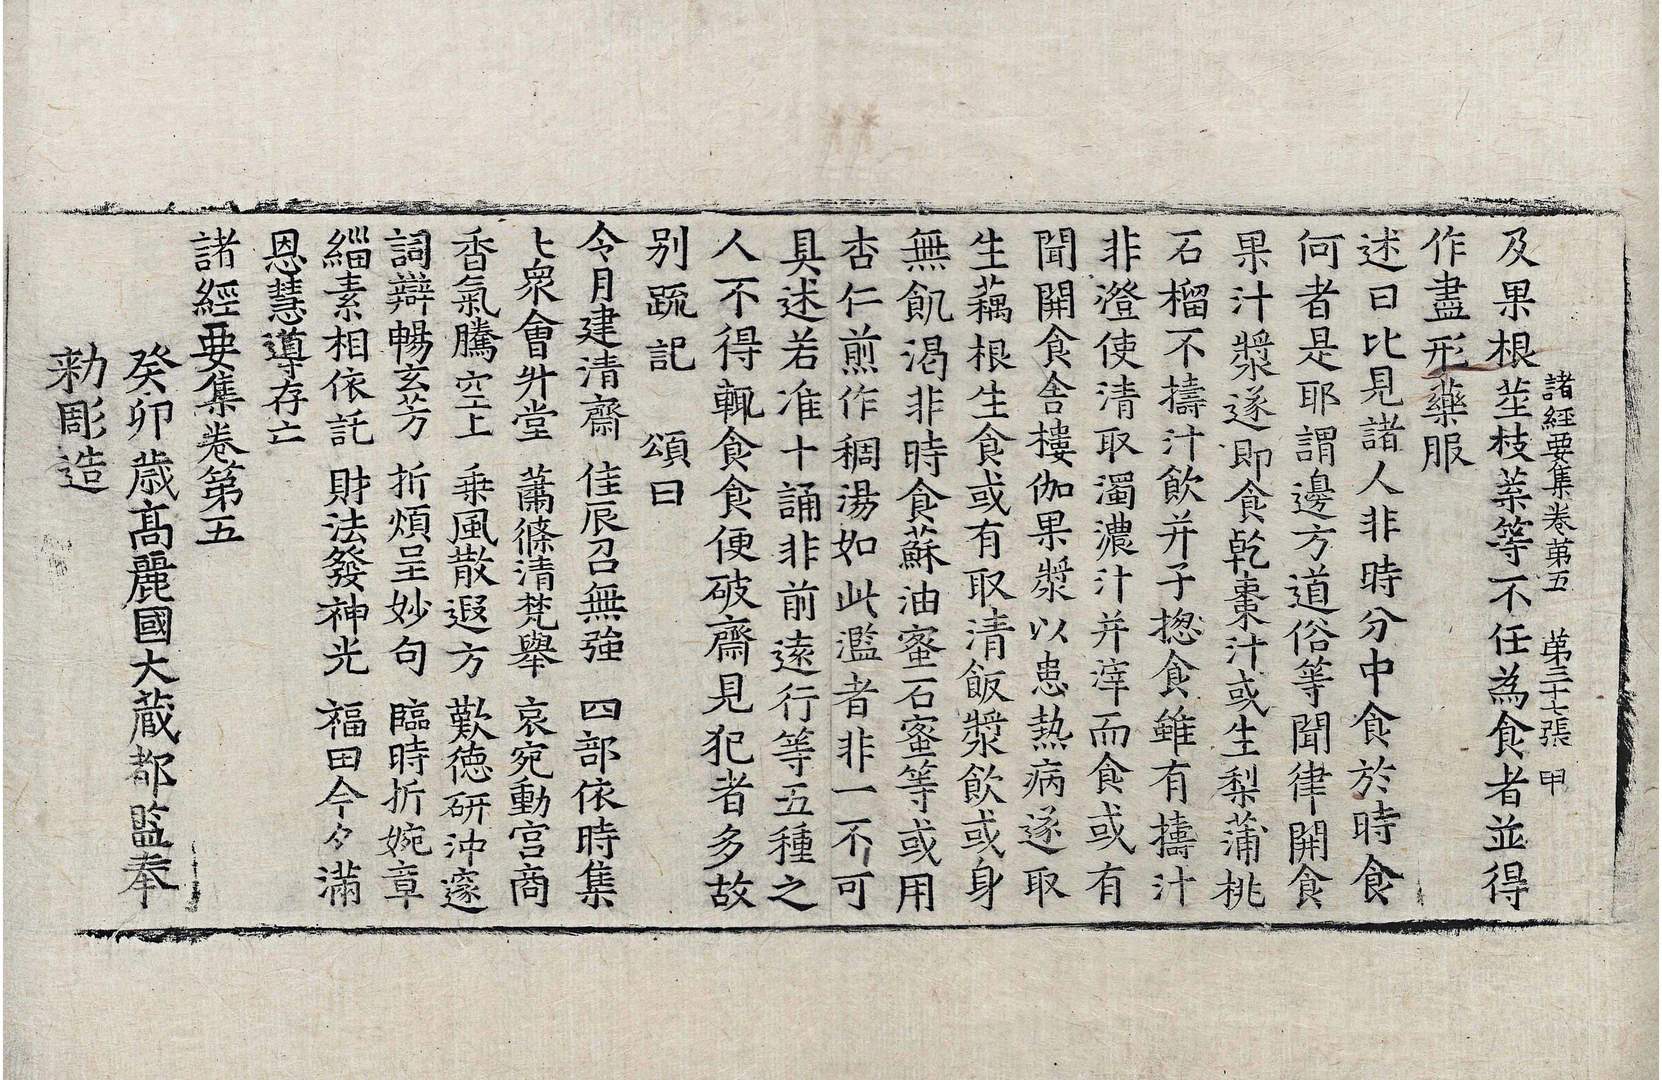 及果根莖枝菜等不任為食者並得
諸經要集卷第五　第三十七張　甲
作盡形藥服
述曰比見諸人非時分中食於時食
何者是耶謂邊方道俗等聞律開食
果汁漿遂即食乾棗汁或生梨蒲桃
石榴不擣汁飲并子揔食雖有擣汁
非澄使清取濁濃汁并滓而食或有
聞開食舍樓伽果漿以患熱病遂取
生藕根生食或有取清飯漿飲或身
無飢渴非時食蘇油蜜石蜜等或用
杏仁煎作稠湯如此濫者非一不可
具述若准十誦非前遠行等五種之
人不得輒食食便破齋見犯者多故
别䟽記　頌曰
令月建清齋　佳辰召無強　四部依時集
七衆會升堂　蕭條清梵舉　哀宛動宮商
香氣騰空上　乗風散遐方　歎德研沖邃
詞辯暢玄芳　折煩呈妙句　臨時折婉章
緇素相依託　財法發神光　福田今夕滿
恩慧導存亡
諸經要集卷第五
癸卯歲高麗國大藏都監奉
勑彫造